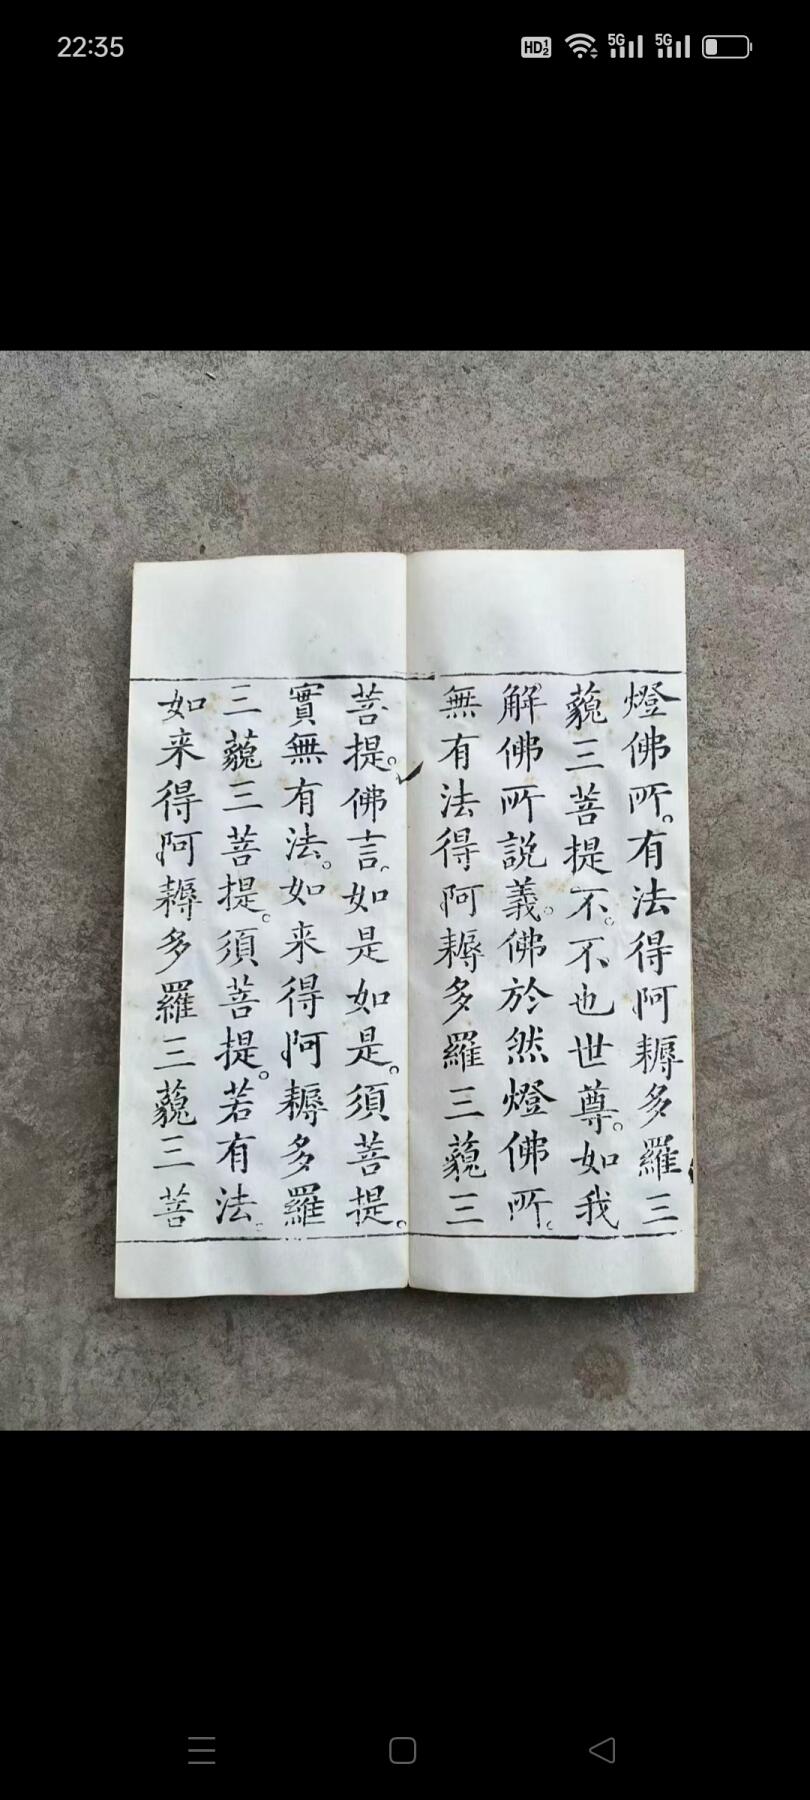 22:35
HD 1 2 5G 5G
燈佛所。有法得阿耨多羅三
藐三菩提不。不也世尊。如我
解佛所說義。佛於然燈佛所。
無有法得阿耨多羅三藐三
菩提。佛言。如是如是。須菩提。
實無有法。如来得阿耨多羅
三藐三菩提。須菩提。若有法。
如来得阿耨多羅三藐三菩